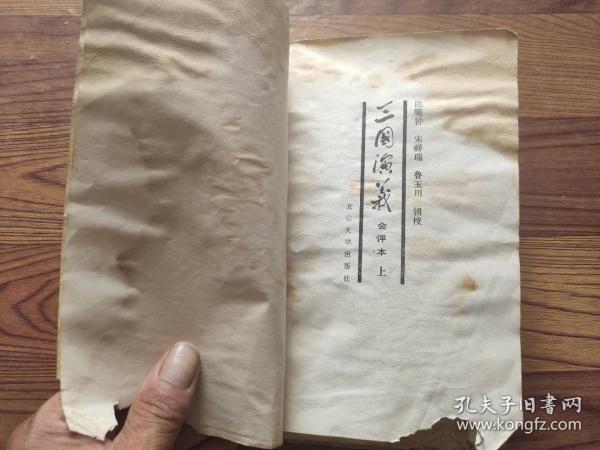 陈曦钟 宋祥瑞 鲁玉川 辑校
三國演義 会评本 上
北京大学出版社
孔夫子旧书网
www.kongfz.com